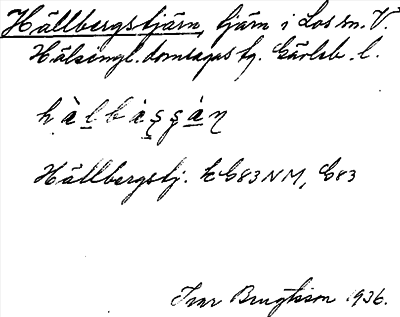 Hällbergstjärn, tjärn i Los sn. V.
Hälsingl. domsagas tg. Gävleb. l.
hàl̠bàs̠s̠à̠ɳ
Hällbergstj. EC83NM, C83
Ivar Bengtsson 1936.